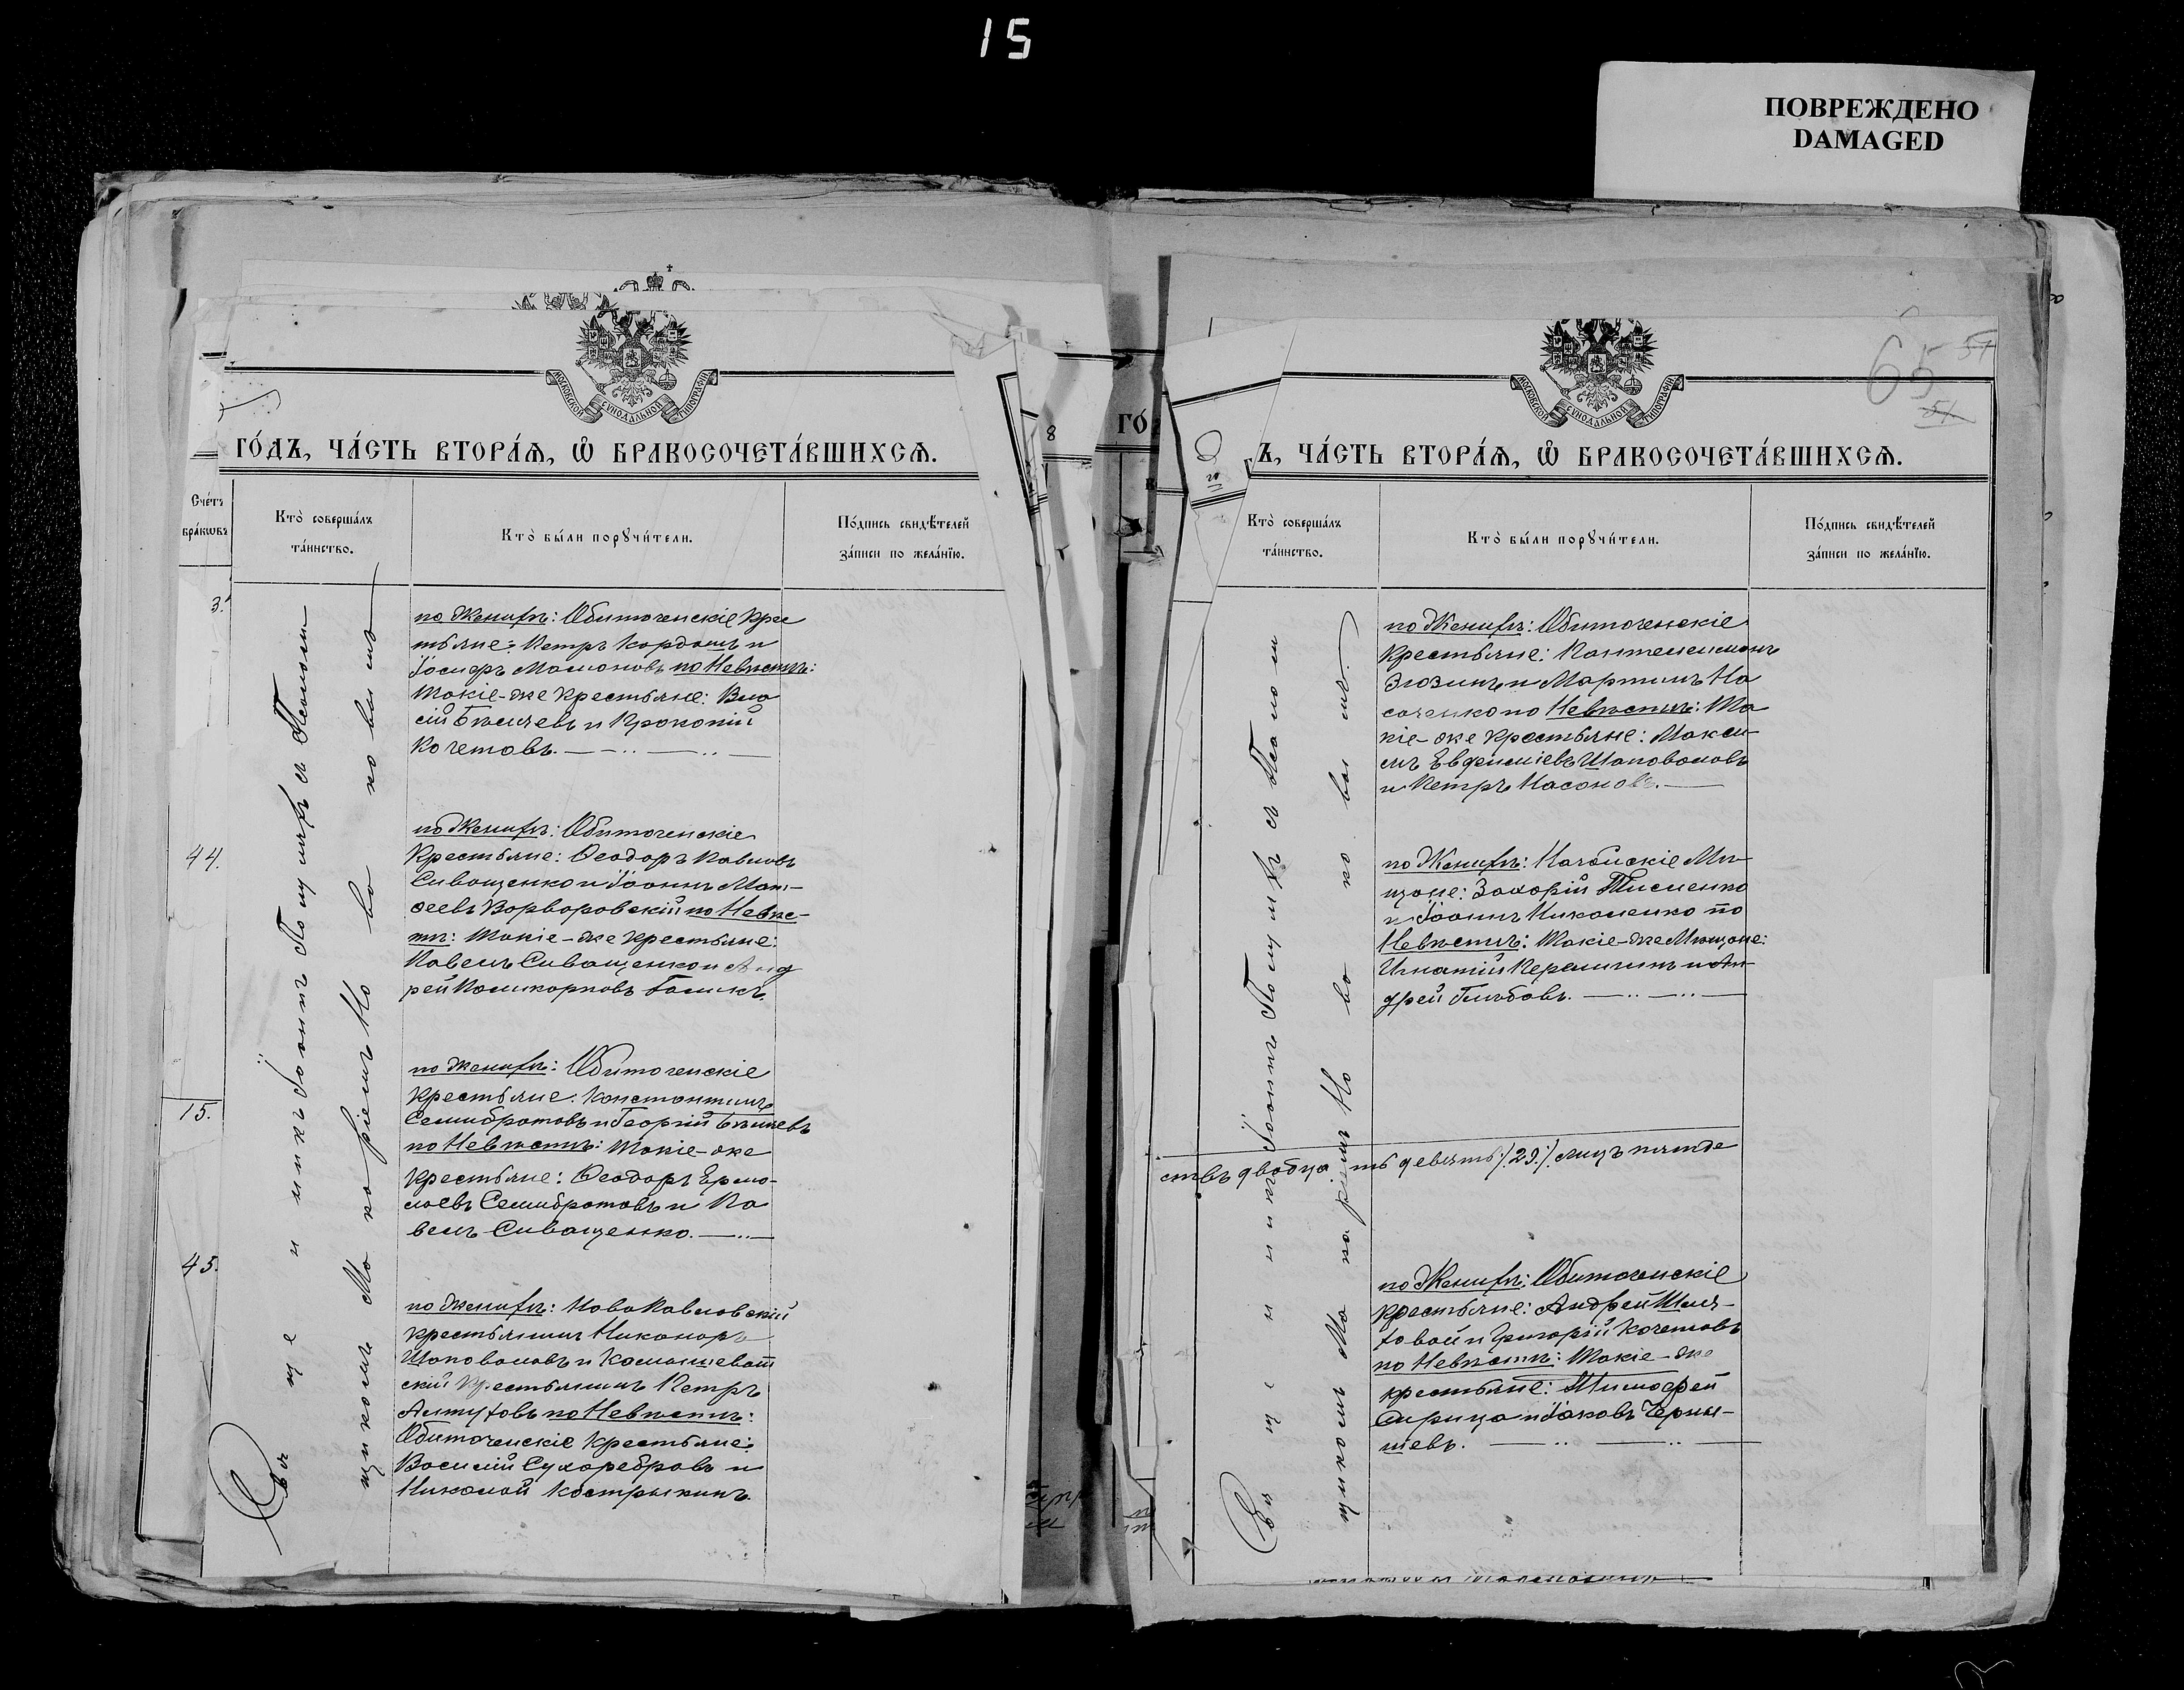 15
ПОВРЕЖДЕНО
DAMAGED
МОСКОВСКОЙ СѴНОДАЛЬНОЙ ТИПОГРАФІИ
ГО́ДЪ, ЧА́СТЬ ВТОРА́Ѧ, Ѽ БРАКОСОЧЕТА́ВШИХСѦ.
Сче́тъ
бра́кѡвъ
Кто̀ соверша́лъ
та́инство.
Кто̀ бы́ли порꙋчи́тели.
По́дпись свидѣ́телей
за́писи по жела́нїю.
3.
44.
15.
45.
Священникъ Іоаннъ Пошихъ съ Псалом
щикомъ Макаріемъ Но во по вымъ
по Женихѣ: Обиточенскіе Кре
стьяне: Петръ Кордашъ и
Іосифъ Мамоновъ по Невѣстѣ:
Такіе-же Крестьяне: Вла
сій Бѣляевъ и Прокопій
Кочетовъ.
по Женихѣ: Обиточенскіе
Крестьяне: Ѳеодоръ Павловъ
Сиващенко и Іоаннъ Мат-
ѳеевъ Варваровскій по Невѣс-
тѣ: Такіе-же Крестьяне:
Павелъ Сиващенко и Анд
рей Поликарповъ Галикъ
по Женихѣ: Обиточенскіе
Крестьяне: Константинъ
Семибратовъ и Георгій Бѣляевъ
по Невѣстѣ: Такіе-же
Крестьяне: Ѳеодоръ Ермо-
лаевъ Семибратовъ и Па
велъ Сиващенко.
по Женихѣ: НовоПавловскій
Крестьянинъ Никаноръ
Шаповаловъ и Камышеват
скій Крестьянинъ Петръ
Алтуховъ по Невѣстѣ:
Обиточенскіе Крестьяне:
Василій Сухоребровъ и
Николай Кострыкинъ.
8
ГО́
65
51
51
МОСКОВСКОЙ СѴНОДАЛЬНОЙ ТИПОГРАФІИ
Ъ, ЧА́СТЬ ВТОРА́Ѧ, Ѽ БРАКОСОЧЕТА́ВШИХСѦ.
Кто̀ соверша́лъ
та́инство.
Кто̀ бы́ли порꙋчи́тели.
По́дпись свидѣ́телей
за́писи по жела́нїю.
по Женихѣ: Обиточенскіе
Крестьяне: Пантелеимонъ
Згозинъ и Мартинъ На
соченко по Невѣстѣ: Та
кіе-же Крестьяне: Макси
мъ Евфиміевъ Шаповаловъ
и Петръ Насоновъ.
по Женихѣ: Ногайскіе Мѣ
щане: Захарій Тисленко
и Іоаннъ Николенко по
Невѣстѣ: Такіе-же Мѣщане:
Игнатій Перлигинъ и Ан
дрей Глѣбовъ.
ствъ двадцать девять /29/ лицъ пятде
по Женихѣ: Обиточенскіе
Крестьяне: Андрей Шля-
ховой и Григорій Кочетовъ
по Невѣстѣ: Такіе-же
крестьяне: Тимоѳей
Сирица и Іаковъ Черны-
шевъ.